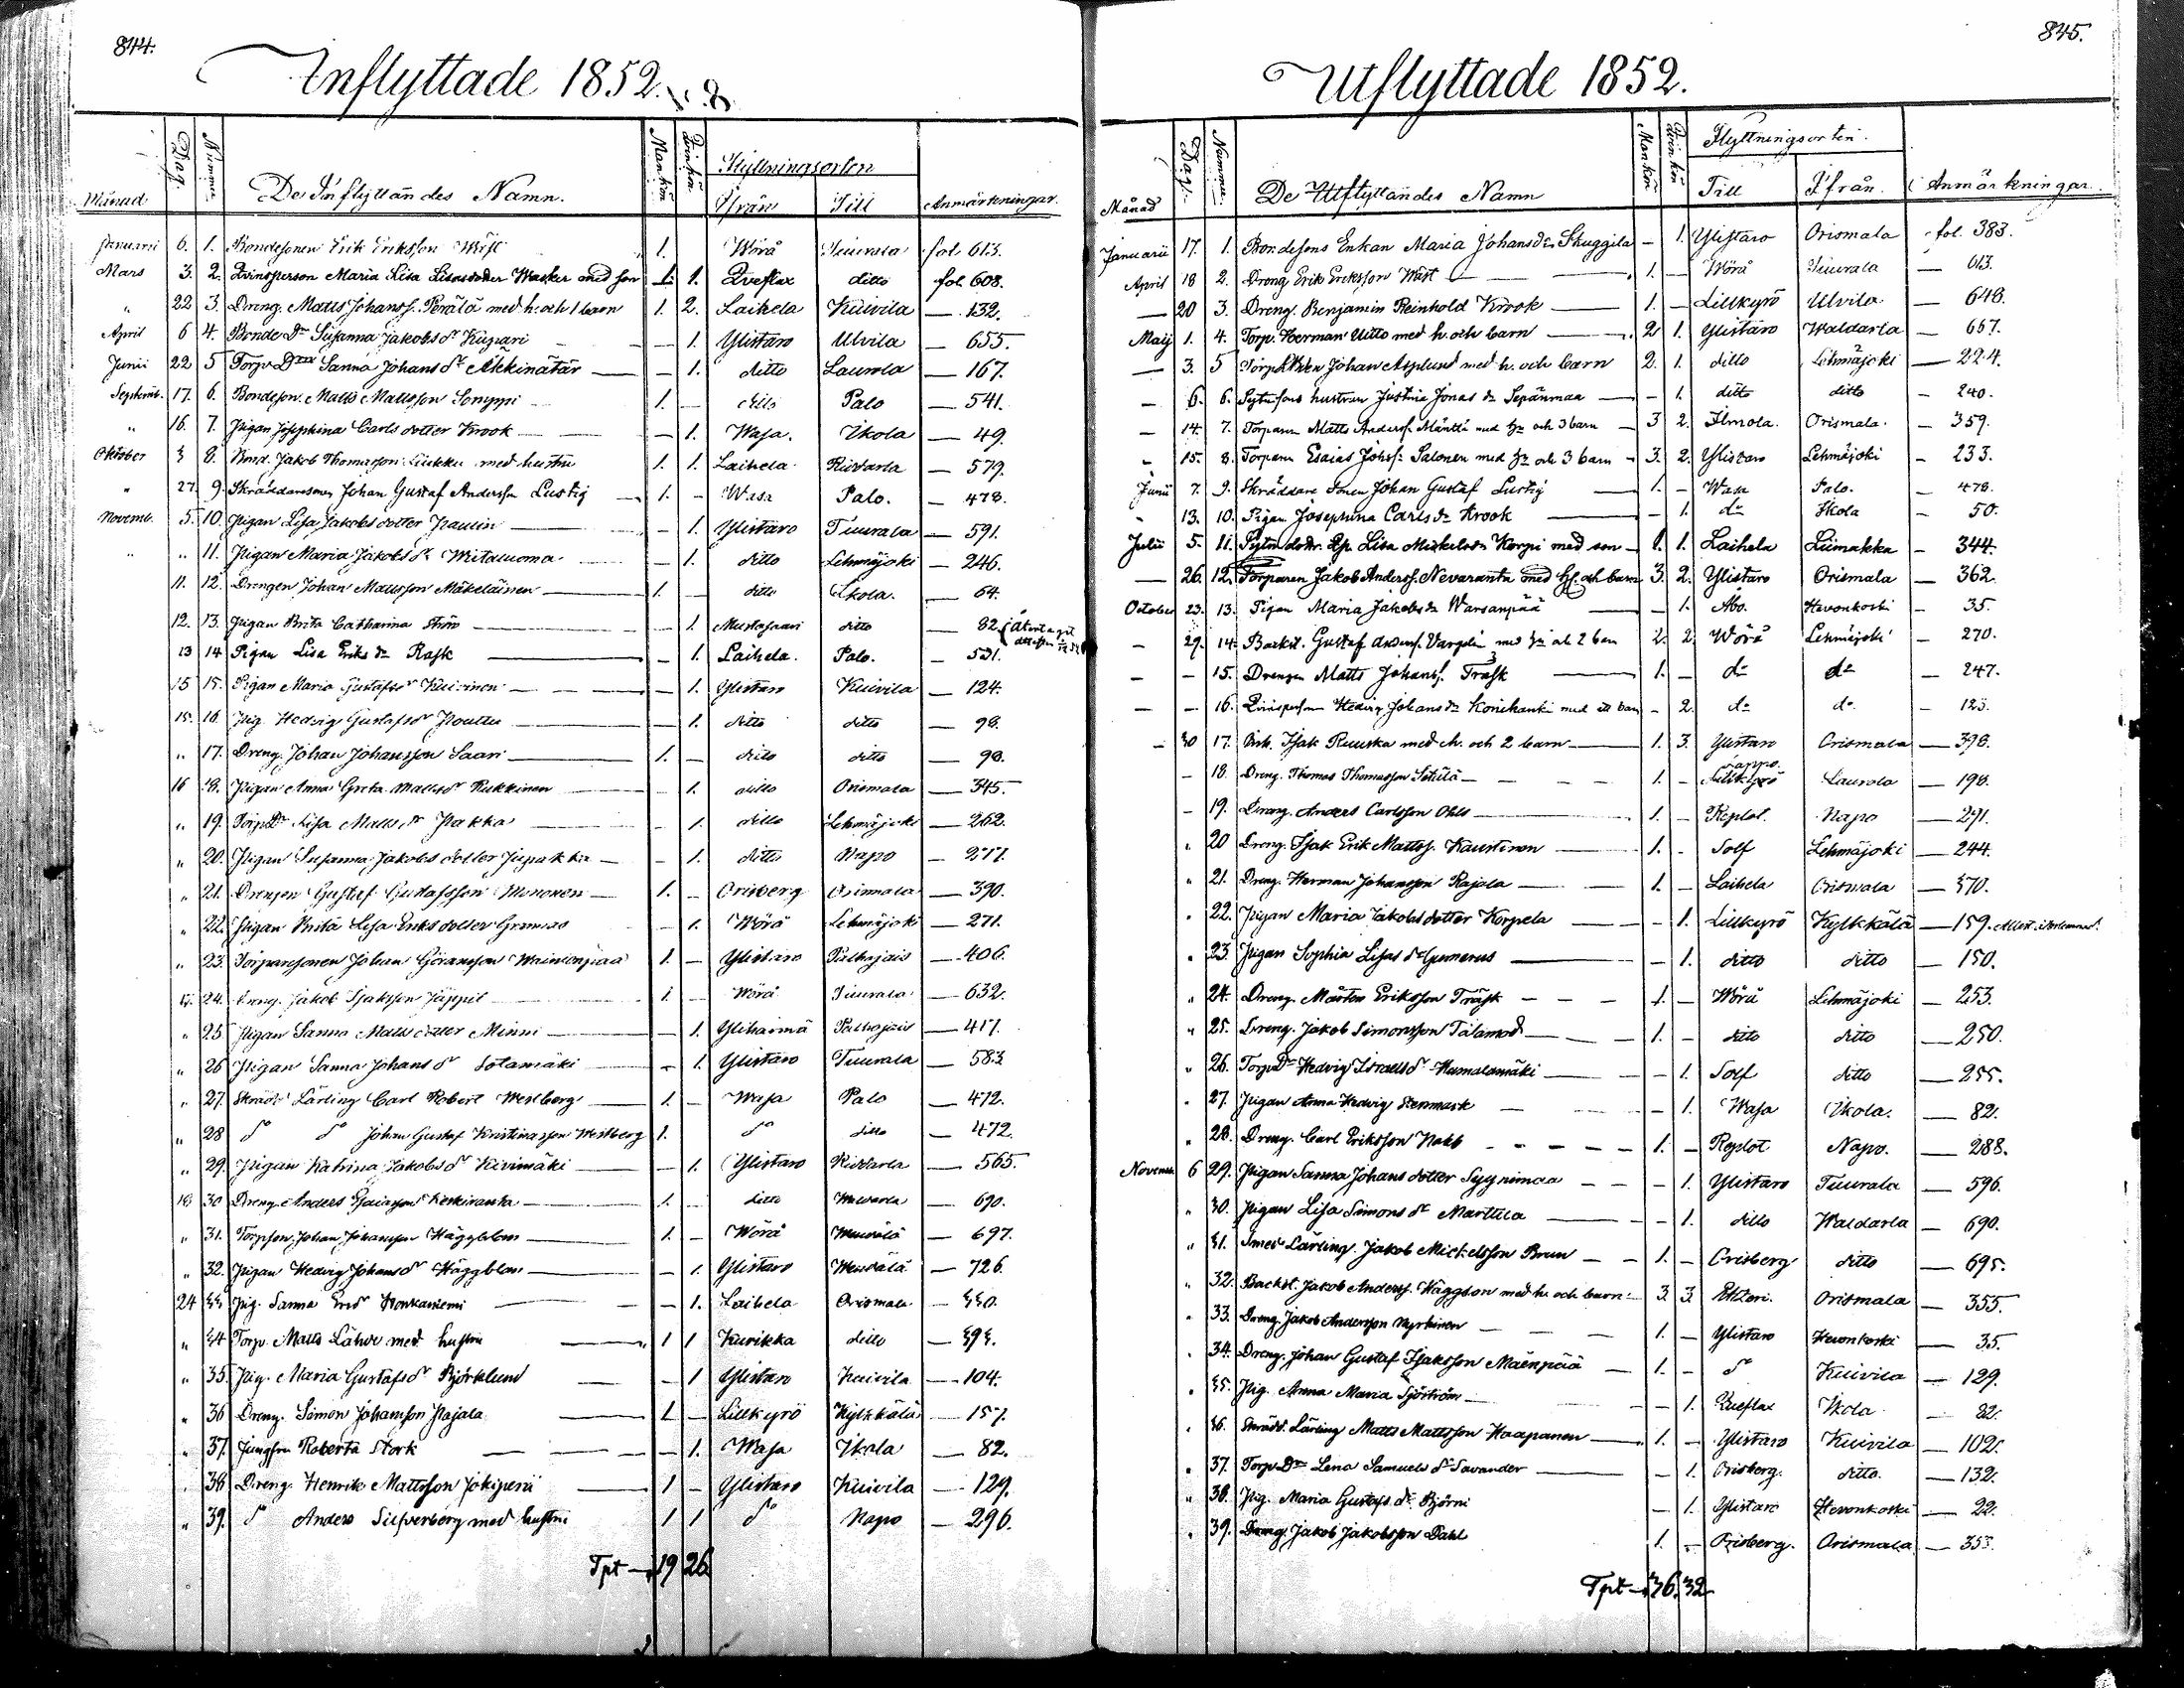 844.
Inflyttade 1852.
Månad Dag. Nummer De Inflyttandes Namn. Mankön Qvinkön Flyttningsorten Anmärkningar.
Ifrån Till
Januarii 6. 1. Bondesonen Erik Eriksson Wäst 1. Wörå Tuurala fol. 613.
Mars 3. 2. Qvinsperson Maria Lisa Lisasdotter Wasker med son 1. 1. Qveflax ditto fol. 608.
" 22 3. Dreng. Matts Johanss. Perälä med h. och 1 barn 1. 2. Laihela Kuivila — 132.
April 6 4. Bonde Dr Susanna Jakobs dr Kupari — 1. Ylistaro Ulvila — 655.
Junii 22 5 Torp. Dtter Sanna Johans dr Äkkinätär — 1. ditto Laurola — 167.
Septemb. 17. 6. Bondeson. Matts Mattsson Sonppi 1. — ditto Palo — 541.
" 16. 7. Pigan Josephina Carls dotter Krook — 1. Wasa. Ikola — 49.
Oktober 3 8. Bond. Jakob Thomasson Liukku med hustru 1. 1. Laihela Kiikarla — 579.
" 27. 9. Skräddaresonen Johan Gustaf Andersson Lustig 1. — Wasa Palo. — 478.
Novemb. 5. 10. Pigan Lisa Jakobs dotter Paulin — 1. Ylistaro Tuurala — 591.
" " 11. Pigan Maria Jakobs dr Witaluoma — 1. ditto Lehmäjoki — 246.
11. 12. Drengen Johan Mattsson Mäkeläinen 1. — ditto Ikola. — 64.
12. 13. Pigan Brita Catharina Ström — 1. Mustasaari ditto — 82.
13 14 Pigan Lisa Eriks dr Rask — 1. Laihela. Palo. — 531.
15 15. Pigan Maria Gustafs dr Kuivinen — 1. Ylistaro Kuivila — 124.
15. 16. Pig. Hedvig Gustafs dr Pouttu — 1. ditto ditto — 98.
" 17. Dreng. Johan Johansson Saari 1. — ditto ditto — 90.
16 18. Pigan Anna Greta Matts dr Rukkinen — 1. ditto Orismala — 345.
" 19. Torp. Dr Lisa Matts dr Pakka — 1. ditto Lehmäjoki — 262.
" 20. Pigan Susanna Jakobs dotter Jupakka — 1. ditto Napo — 277.
" 21. Drengen Gustaf Gustafsson Mononen 1. — Orisberg Orismala — 390.
" 22. Pigan Brita Lisa Eriks dotter — 1. Wörå Lehmäjoki — 271.
" 23. Torparesonen Johan Göransson Wainionpää 1. — Ylistaro Palhojais — 406.
17. 24. Dreng. Jakob Isaksson Jäppil 1. — Wörå Tuurala — 632.
" 25 Pigan Sanna Matts dotter Minni — 1. Ylihärmä Palhojais — 417.
" 26 Pigan Sanna Johans dr Sotamäki — 1. Ylistaro Tuurala — 583.
" 27. Skrädd. Lärling Carl Robert Westberg 1. — Wasa Palo — 472.
" 28 do do Johan Gustaf Kristinasson Westberg 1. do ditto — 472.
" 29. Pigan Katrina Jakobs dr Kivimäki — 1. Ylistaro Kiikarla — 565.
18 30 Dreng. Anders Esaiasson Keskiranta 1. — ditto Waldarla — 690.
" 31. Torpson. Johan Johansson Häggblom 1. — Wörå — 697.
" 32. Pigan Hedvig Johans dr Häggblom — 1. Ylistaro — 726.
24 33 Pig. Sanna Eric dr Honkaniemi — 1. Laihela Orismala — 330.
" 34 Torp. Matts Lähde med hustru 1 1 Kurikka ditto — 393.
" 35. Pig. Maria Gustafs dr Björklund — 1 Ylistaro Kuivila — 104.
" 36 Dreng. Simon Johansson Pajala 1. — Lillkyrö Kylkkälä — 157.
" 37. Jungfru Roberta Stork — 1. Wasa Ikola — 82.
" 38 Dreng. Henrik Mattsson Jokiperä 1 — Ylistaro Kuivila — 129.
" 39. do Anders Silfverberg med hustru 1 1 do Napo — 296.
Tpt — 19 26
845.
Utflyttade 1852.
Månad Dag. Nummer. De Utflyttandes Namn Mankön Qvinkön Flyttningsorten. Anmärkningar.
Till Ifrån.
Januarii 17. 1. Bondesons Enkan Maria Johans dr Skuggila — 1. Ylistaro Orismala fol. 383.
April 18 2. Dreng Erik Eriksson Wäst 1. — Wörå Tuurala — 613.
— 20 3. Dreng. Benjamin Reinhold Krook 1. — Lillkyrö Ulvila — 648.
Maij 1. 4. Torp. Herman Uitto med h. och barn 2 1. Ylistaro Waldarla — 667.
— 3. 5 Johan Asplund med h. och barn 2. 1. ditto Lehmäjoki — 224.
— 6. 6. hustrun Justina Jonas dr Sepänmaa — 1. ditto ditto — 240.
— 14. 7. Torparen Matts Anderss. Mänttä med hu och 3 barn 3 2. Ilmola. Orismala. — 359.
— 15. 8. Torparen Esaias Johss. Salonen med hu och 3 barn 3. 2. Ylistaro Lehmäjoki — 233.
Junii 7. 9. Skräddare sonen Johan Gustaf Lustig 1. — Wasa Palo. — 478.
" 13. 10. Pigan Josephina Carls dr Krook — 1. do Ikola — 50.
Julii 5. 11. Lisa Mickels dr Korpi med son 1. 1. Laihela Liimakka — 344.
— 26. 12. Torparen Jakob Anderss. Nevaranta med h. och barn 3. 2. Ylistaro Orismala — 362.
October 23. 13. Pigan Maria Jakobs dr Warsanpää — 1. Åbo. Hevonkoski — 35.
— 29. 14. Backst. Gustaf Anderss. Vargelin med hu och 2 barn 2. 2. Wörå Lehmäjoki — 270.
— — 15. Drengen Matts Johanss. Träsk 1. — do do — 247.
— — 16. Qvinsperson Hedvig Johans dr Konihanki med ett barn — 2. do do — 123.
— 30 17. Bsk. Isak Ruuska med h. och 2 barn 1. 3. Ylistaro Orismala — 398.
— 18. Dreng. Thomas Thomasson Setälä 1. — Lappo. Lillkyrö Laurola — 198.
— 19. Dreng. Anders Carlsson Ohls 1. — Replot. Napo — 291.
" 20 Dreng. Isak Erik Mattss. Kaustinen 1. — Solf Lehmäjoki — 244.
" 21. Dreng. Herman Johansson Rajala 1. — Laihela Orismala — 370.
" 22. Pigan Maria Jakobs dotter Korpela — 1. Lillkyrö Kylkkälä — 159.
" 23. Pigan Sophia Lisas dr Gumerus — 1. ditto ditto — 150.
" 24. Dreng. Mårten Eriksson Träsk 1. — Wörå Lehmäjoki — 253.
" 25. Dreng. Jakob Simonsson Tålamod 1. — ditto ditto — 250.
" 26. Torp. Dr Hedvig Israels dr Humalamäki — 1. Solf ditto — 255.
" 27. Pigan Anna Hedvig Stenmark — 1. Wasa Ikola. — 82.
" 28. Dreng. Carl Eriksson Nabb 1. — Replot Napo. — 288.
Novemb. 6 29. Pigan Sanna Johans dotter Syynimaa — 1. Ylistaro Tuurala — 596.
" 30. Pigan Lisa Simons dr Marttila — 1. ditto Waldarla — 690.
" 31. Smed Lärling. Jakob Michelsson Brun 1. — Orisberg ditto — 695.
" 32. Backst. Jakob Anderss. Häggbon med h. och barn 3. 3. Etseri. Orismala — 355.
" 33. Dreng. Jakob Andersson Myrkinen 1. — Ylistaro Hevonkoski — 35.
" 34. Dreng. Johan Gustaf Isaksson Mäenpää 1. — do Kuivila — 129.
" 35. Pig. Anna Maria Sjöström — 1. Queflax Ikola — 82.
" 36. Skrädd. Lärling Matts Mattsson Haapanen 1. — Ylistaro Kuivila — 102.
" 37. Torp. Dr Lena Samuels dr Savander — 1. Orisberg. ditto. — 132.
" 38. Pig. Maria Gustafs dr Björni — 1. Ylistaro Hevonkoski — 22.
" 39. Dreng. Jakob Jakobsson Dahl 1. — Orisberg. Orismala — 353.
Tpt — 36. 32